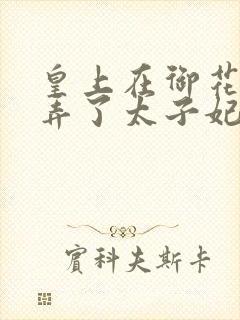 皇上在御花
弄了太子妃
賓科夫斯卡